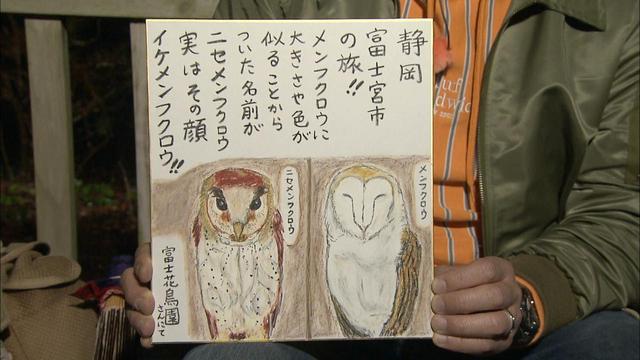 静岡
富士宮市
の旅!!
メンフクロウに
大きさや色が
似ることから
ついた名前が
ニセメンフクロウ
実はその顔
イケメンフクロウ!!
メンフクロウ
ニセメンフクロウ
富士花鳥園
さんにて